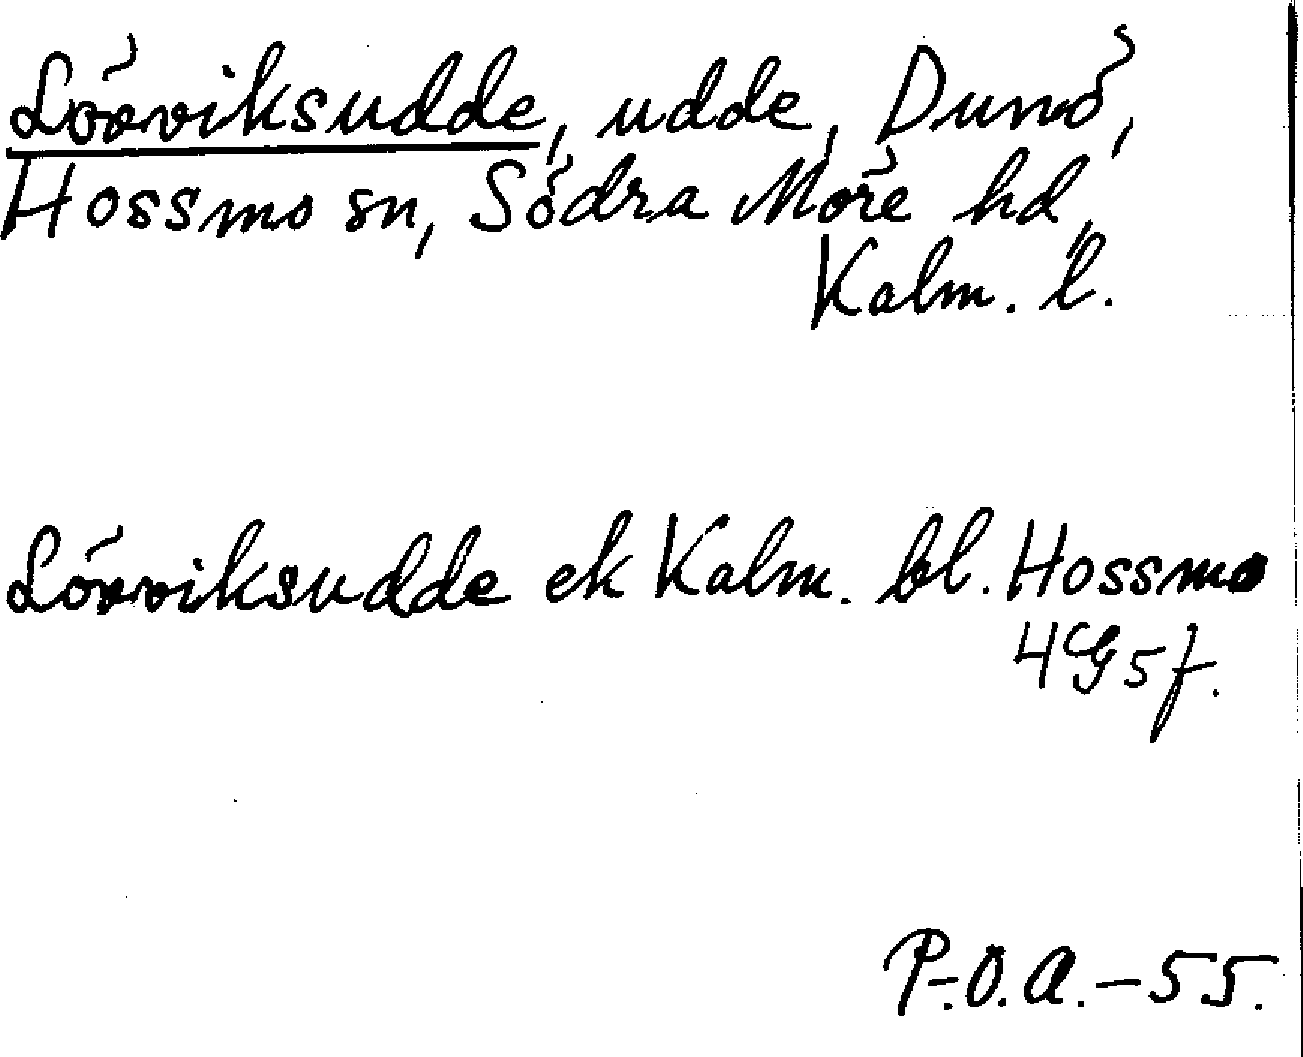 Lövviksudde, udde, Dunö,
Hossmo sn, Södra Möre hd,
Kalm. l.
Lövviksudde ek Kalm. bl. Hossmo
4G5f.
P.O.A.-55.